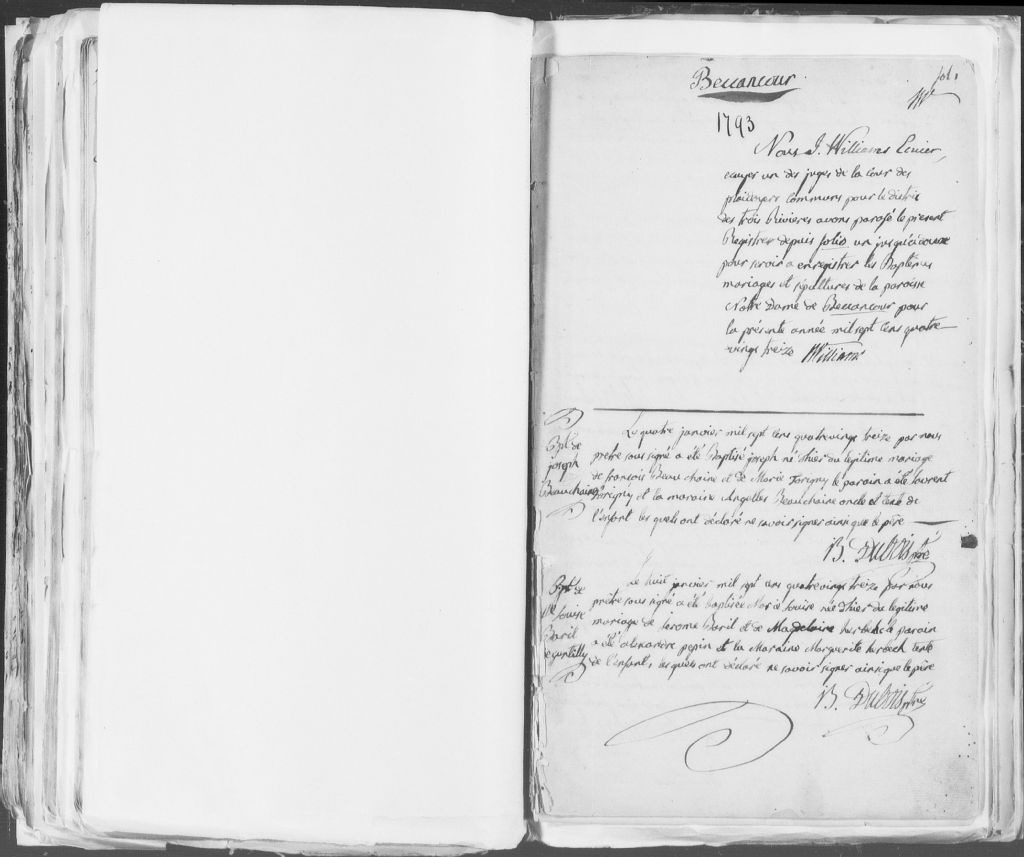 Beccancour
fol. 1
1793
Nous J. Williams Ecuier,
ecuyer un des juges de la Cour des
plaidoyers Communs pour le district
des trois Rivieres avons parafé le present
Registres depuis folio un jusqu'à douze
pour servir a enregistrer les Baptêmes
mariages et sépultures de la paroisse
Notre Dame de Beccancour pour
la présente année mil sept Cens quatre
vingt treize JWilliams
Bpt. de
joseph
Beauchaine
Le quatre janvier mil sept Cens quatrevingt treize par nous
prêtre sous signé a été Baptisé joseph né d'hier du legitime mariage
de francois Beauchaine et de Marie Forigny le parain a été laurent
Forigny et la maraine Angelles Beauchaine oncle et tente de
l'enfant les quels ont déclaré ne savoir signer ainsi que le père
B. Dubois ptre
Bpt. de
Me louise
Baril
de gentilly
Le huit janvier mil sept Cens quatrevingt treize par nous
prêtre sous signé a été baptisée Marie louise née d'hier du legitime
mariage de Jerome Baril et de Magdelaine le parain
a été alexandre pepin et la Maraine Marguerite tente
de l'enfant, les quels ont déclaré ne savoir signer ainsi que le père
B. Dubois ptre